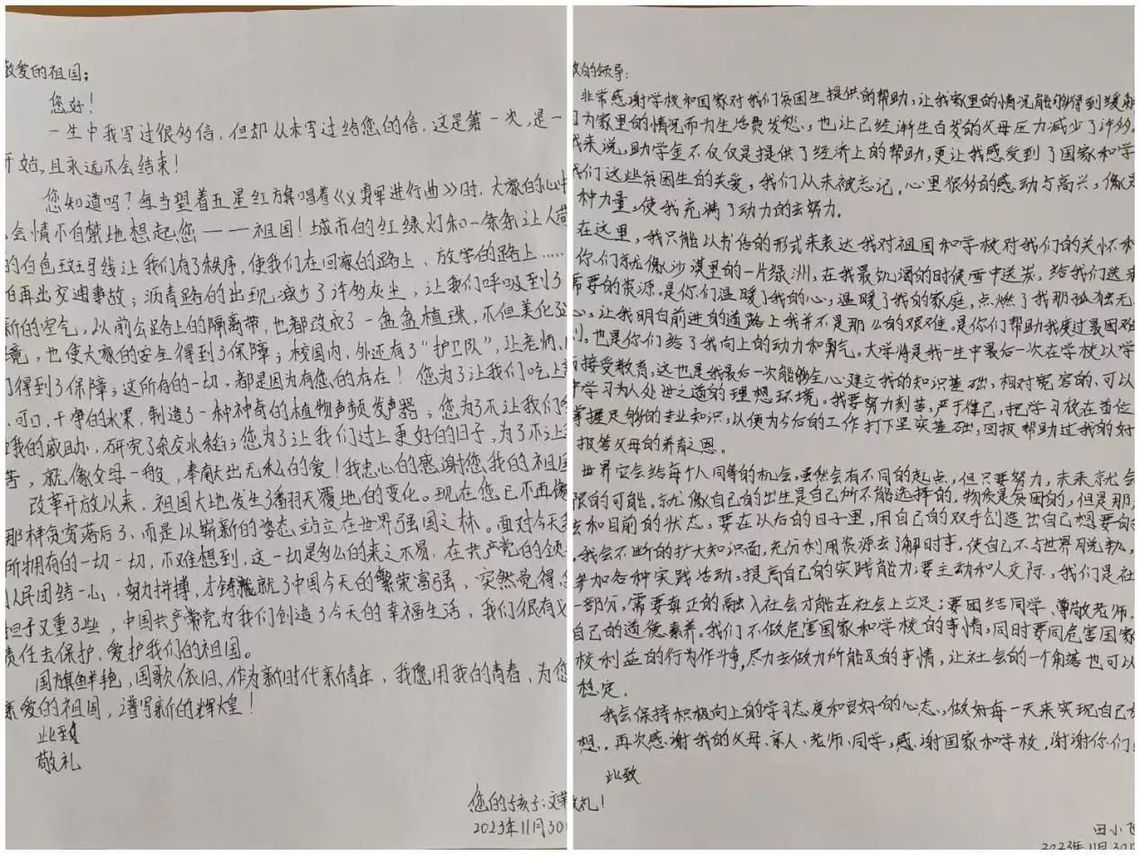 敬爱的祖国：
您好！
一生中我写过很多信，但却从未写过给您的信，这是第一次，是一
开始，且永远不会结束！
您知道吗？每当望着五星红旗唱着《义勇军进行曲》时，大家的心中
会情不自禁地想起您——祖国！城市的红绿灯和一条条让人
的白色斑马线让我们有了秩序，使我们在回家的路上、放学的路上……
怕再出交通事故；沥青路的出现减少了许多灰尘，让我们呼吸到了
新的空气，以前公路上的隔离带，也都改成了一盆盆植株，不但美化
境，也使大家的安全得到了保障；校园内、外还有了“护卫队”，让老师、
们得到了保障；这所有的一切，都是因为有您的存在！您为了让我们吃上
、可口、干净的水果，制造了一种神奇的植物声频发声器；您为了不让我们
饿的威胁，研究了杂交水稻；您为了让我们过上更好的日子，为了不让
苦，就像父母一般，奉献出无私的爱！我忠心的感谢您我的祖国
改革开放以来，祖国大地发生了翻天覆地的变化。现在您已不再像
那样贫穷落后了，而是以崭新的姿态站立在世界强国之林。面对今天
所拥有的一切一切，不难想到，这一切是多么的来之不易。在共产党的领
人民团结一心，努力拼搏，才铸就了中国今天的繁荣富强，突然觉得
担子又重了些，中国共产党为我们创造了今天的幸福生活，我们很有义
责任去保护、爱护我们的祖国。
国旗鲜艳，国歌依旧，作为新时代青年，我愿用我的青春，为您
亲爱的祖国，谱写新的辉煌！
此致
敬礼
您的孩子：文荣
2023年11月30
敬的领导：
非常感谢学校和国家对我们贫困生提供的帮助，让我家里的情况能够得到缓解
因为家里的情况而为生活费发愁，也让已经渐生白发的父母压力减少了许多。
我来说，助学金不仅仅是提供了经济上的帮助，更让我感受到了国家和学
我们这些贫困生的关爱，我们从未被忘记，心里很多的感动与高兴，像是
种力量，使我充满了动力的去努力。
在这里，我只能以书信的形式来表达我对祖国和学校对我们的关怀和
你们就像沙漠里的一片绿洲，在我最饥渴的时候雪中送炭，给我们送来
需要的资源，是你们温暖了我的心，温暖了我的家庭，点燃了我那孤独无
心，让我明白前进的道路上我并不是那么的艰难。是你们帮助我度过最困难
刻，也是你们给了我向上的动力和勇气。大学将是我一生中最后一次在学校以学
而接受教育，这也是我最后一次能够全心建立我的知识基础，相对宽容的、可以
中学习为人处世之道的理想环境。我要努力刻苦，严于律己，把学习放在首位
掌握足够的专业知识，以便为今后的工作打下坚实基础，回报帮助过我的好
报答父母的养育之恩。
世界它会给每个人同等的机会，虽然会有不同的起点，但只要努力，未来就会
限的可能。就像自己的出生是自己所不能选择的，物质是贫困的，但是那
去和目前的状态，要在以后的日子里，用自己的双手创造出自己想要的
我会不断的扩大知识面，充分利用资源去了解时事，使自己不与世界脱轨。
参加各种实践活动，提高自己的实践能力；要主动和人交际，我们是社
一部分，需要真正的融入社会才能在社会上立足；要团结同学、尊敬老师，
自己的道德素养。我们不做危害国家和学校的事情，同时要同危害国家
校利益的行为作斗争，尽力去做力所能及的事情，让社会的一个角落也可以
稳定。
我会保持积极向上的学习态度和良好的心态，做好每一天来实现自己
想。再次感谢我的父母、亲人、老师、同学，感谢国家和学校，谢谢你们
此致
敬礼！
田小飞
2023年11月30日